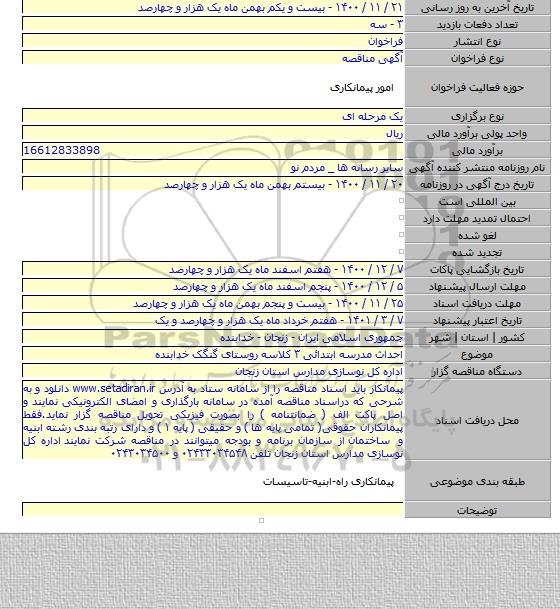 تاریخ آخرین به روز رسانی ۲۱ / ۱۱ / ۱۴۰۰ - بیست و یکم بهمن ماه یک هزار و چهارصد
تعداد دفعات بازدید ۳ - سه
نوع انتشار فراخوان
نوع فراخوان آگهی مناقصه
حوزه فعالیت فراخوان امور پیمانکاری
نوع برگزاری یک مرحله ای
واحد پولی برآورد مالی ریال
برآورد مالی 16612833898
نام روزنامه منتشر کننده آگهی سایر رسانه ها _ مردم نو
تاریخ درج آگهی در روزنامه ۲۰ / ۱۱ / ۱۴۰۰ - بیستم بهمن ماه یک هزار و چهارصد
بین المللی است
احتمال تمدید مهلت دارد
لغو شده
تجدید شده
تاریخ بازگشایی پاکات ۷ / ۱۲ / ۱۴۰۰ - هفتم اسفند ماه یک هزار و چهارصد
مهلت ارسال پیشنهاد ۵ / ۱۲ / ۱۴۰۰ - پنجم اسفند ماه یک هزار و چهارصد
مهلت دریافت اسناد ۲۵ / ۱۱ / ۱۴۰۰ - بیست و پنجم بهمن ماه یک هزار و چهارصد
تاریخ اعتبار پیشنهاد ۷ / ۳ / ۱۴۰۱ - هفتم خرداد ماه یک هزار و چهارصد و یک
کشور | استان | شهر جمهوری اسلامی ایران - زنجان - خدابنده
موضوع احداث مدرسه ابتدائی ۳ کلاسه روستای گنگک خدابنده
دستگاه مناقصه گزار اداره کل نوسازی مدارس استان زنجان
محل دریافت اسناد
پیمانکاز باید اسناد مناقصه را از سامانه ستاد به آدرس www.setadiran.ir دانلود و به
شرحی که دراسناد مناقصه آمده در سامانه بارگذاری و امضای الکترونیکی نمایند و
اصل پاکت الف ( ضمانتنامه ) را بصورت فیزیکی تحویل مناقصه گزار نماید.فقط
پیمانکاران حقوقی( تمامی پایه ها ) و حقیقی ( پایه ۱ ) و دارای رتبه بندی رشته ابنیه
و ساختمان از سازمان برنامه و بودجه میتوانند در مناقصه شرکت نمایند اداره کل
نوسازی مدارس استان زنجان تلفن ۰۲۴۳۳۰۳۴۵۴۸ و ۰۲۴۳۰۳۴۵۰۰
طبقه بندی موضوعی پیمانکاری راه-ابنیه-تاسیسات
توضیحات
ParsNamadData
۰۲۱-۸۸۳۴۹۶۷۰-۵